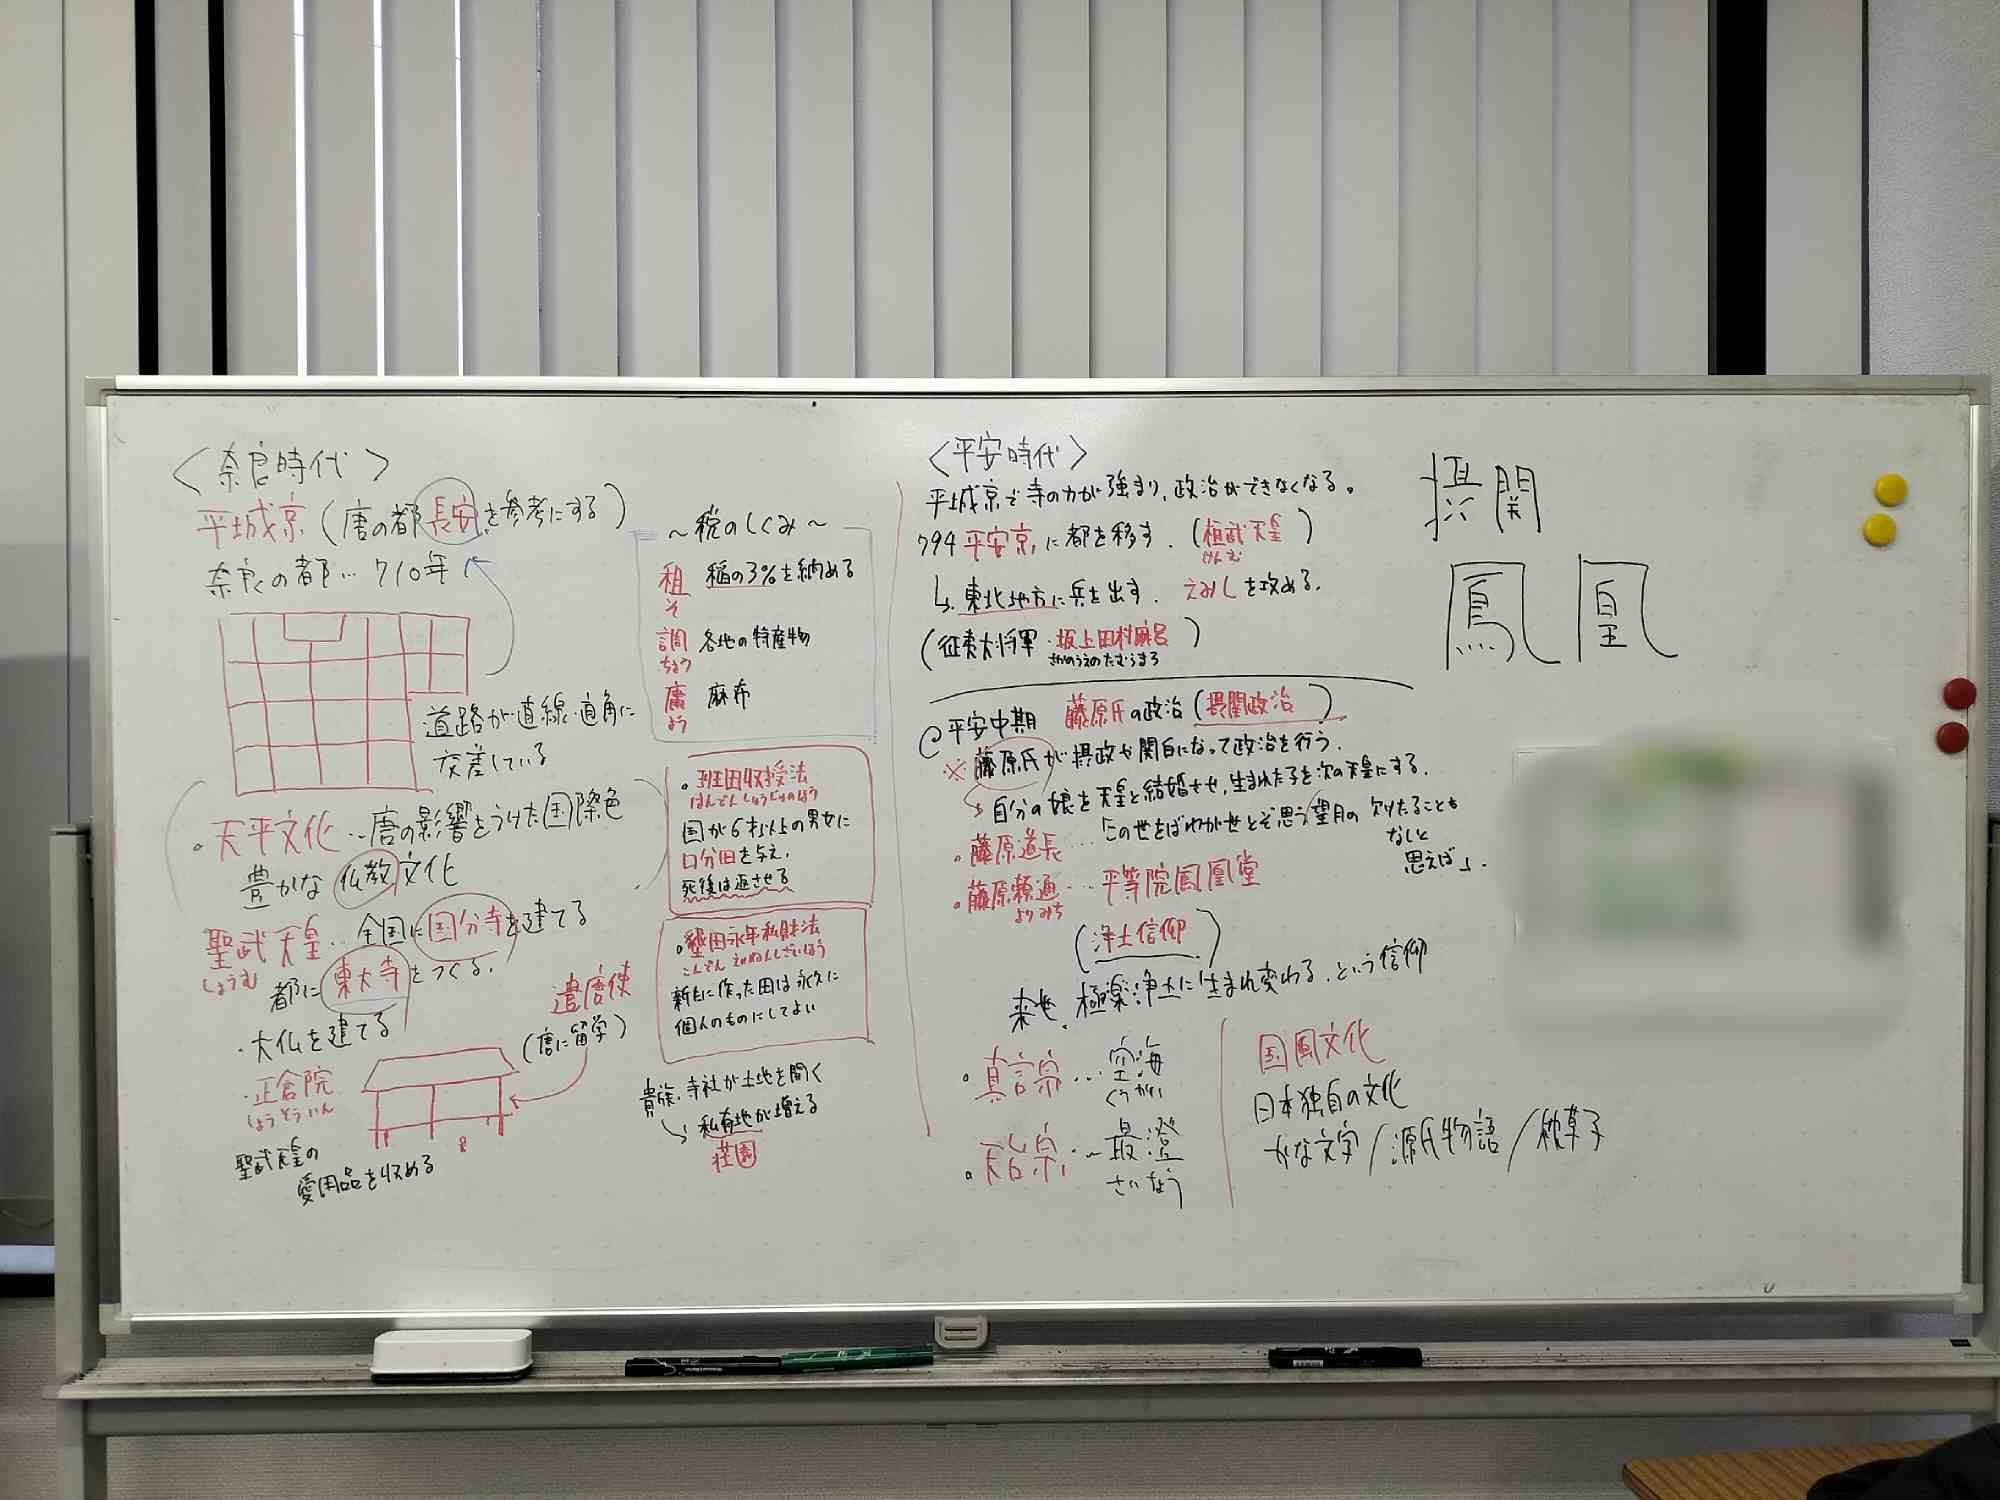 〈奈良時代〉
平城京（唐の都長安を参考にする）
奈良の都…710年
道路が直線・直角に
交差している
・天平文化…唐の影響をうけた国際色
豊かな仏教文化
聖武天皇…全国に国分寺を建てる
しょうむ
都に東大寺をつくる.
・大仏を建てる
・正倉院
しょうそういん
聖武天皇の
愛用品を収める
遣唐使
（唐に留学）
～税のしくみ～
租 稲の3%を納める
そ
調 各地の特産物
ちょう
庸 麻布
よう
・班田収授法
はんでんしゅうじゅのほう
国が6才以上の男女に
口分田を与え,
死後は返させる
・墾田永年私財法
こんでんえいねんしざいほう
新たに作った田は永久に
個人のものにしてよい
貴族,寺社が土地を開く
↳私有地が増える
荘園
〈平安時代〉
平城京で寺の力が強まり,政治ができなくなる。
794平安京,に都を移す.（桓武天皇）
かんむ
↳.東北地方に兵を出す. えみしを攻める.
（征夷大将軍・坂上田村麻呂）
さかのうえのたむらまろ
@平安中期 藤原氏の政治（摂関政治）
※藤原氏が摂政や関白になって政治を行う.
↳自分の娘を天皇と結婚させ,生まれた子を次の天皇にする.
・藤原道長…「この世をばわが世とぞ思う望月の欠けたることも
なしと
思えば」.
・藤原頼通…平等院鳳凰堂
よりみち
（浄土信仰）
来世,極楽浄土に生まれ変わる.という信仰
・真言宗…空海
くうかい
・天台宗…最澄
さいちょう
国風文化
日本独自の文化
かな文字/源氏物語/枕草子
摂関
鳳凰